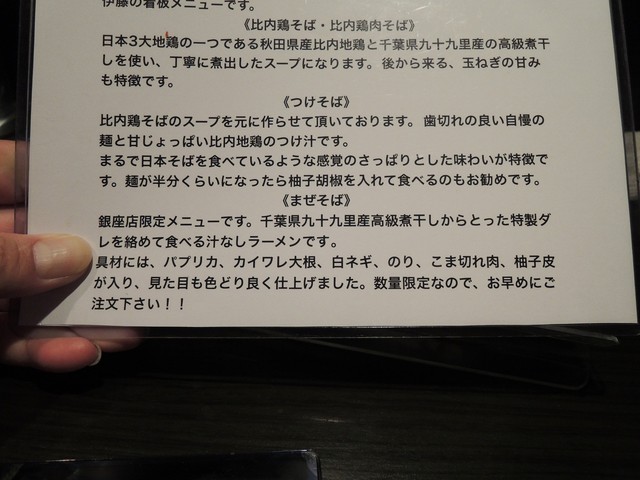 伊藤の看板メニューです。
《比内鶏そば・比内鶏肉そば》
日本3大地鶏の一つである秋田県産比内地鶏と千葉県九十九里産の高級煮干
しを使い、丁寧に煮出したスープになります。後から来る、玉ねぎの甘み
も特徴です。
《つけそば》
比内鶏そばのスープを元に作らせて頂いております。歯切れの良い自慢の
麺と甘じょっぱい比内地鶏のつけ汁です。
まるで日本そばを食べているような感覚のさっぱりとした味わいが特徴で
す。麺が半分くらいになったら柚子胡椒を入れて食べるのもお勧めです。
《まぜそば》
銀座店限定メニューです。千葉県九十九里産高級煮干しからとった特製ダ
レを絡めて食べる汁なしラーメンです。
具材には、パプリカ、カイワレ大根、白ネギ、のり、こま切れ肉、柚子皮
が入り、見た目も色どり良く仕上げました。数量限定なので、お早めにご
注文下さい！！